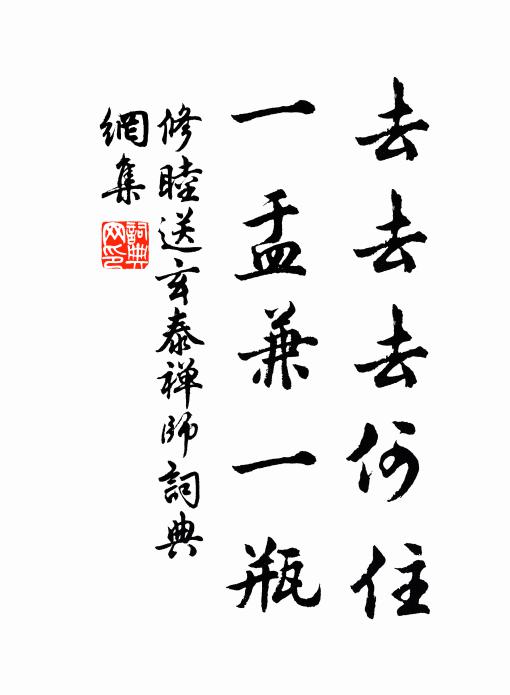 去去去何住
一盂兼一瓶
修睦送玄泰禅师詞典
網集
詞典网印